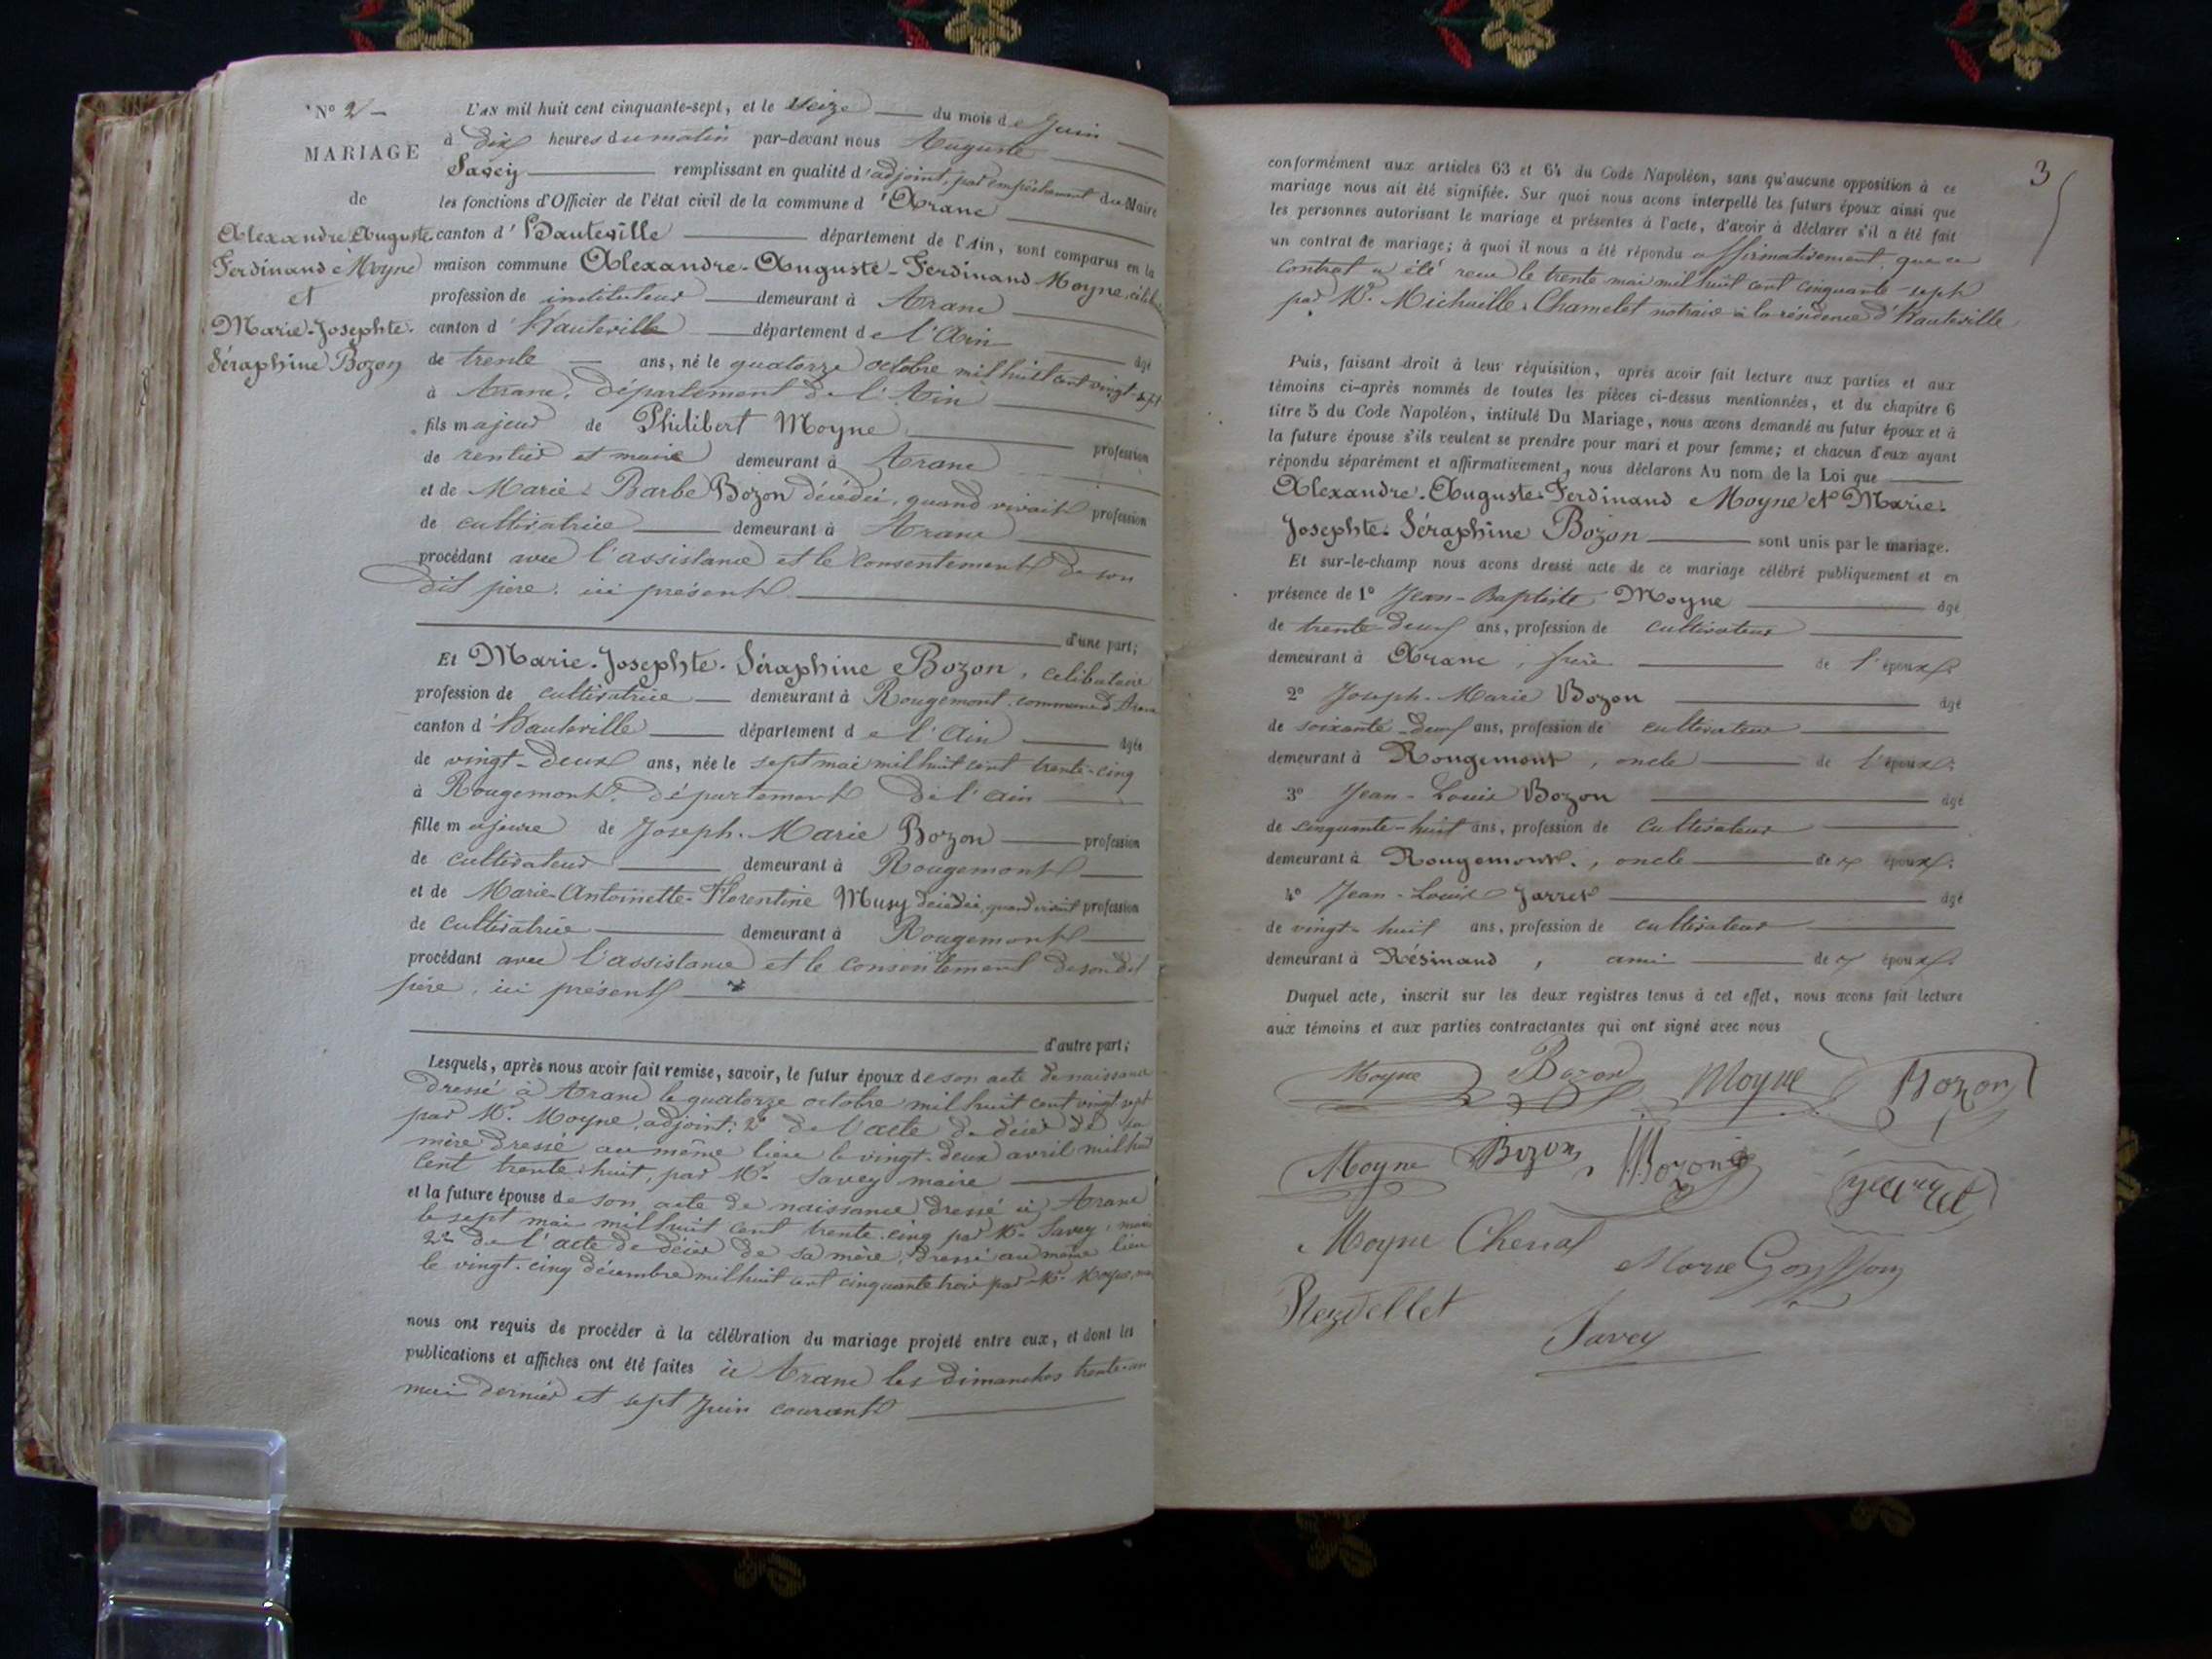 N° 2
MARIAGE
de
Alexandre Auguste
Ferdinand Moyne
et
Marie-Josephte-
Séraphine Bozon
L'AN mil huit cent cinquante-sept, et le seize du mois de Juin
à dix heures du matin par-devant nous Auguste
Savey remplissant en qualité d'adjoint, par empêchement du Maire
les fonctions d'Officier de l'état civil de la commune d'Aranc
canton d'Hauteville département de l'Ain, sont comparus en la
maison commune Alexandre-Auguste-Ferdinand Moyne,
profession de instituteur demeurant à Aranc
canton d'Hauteville département de l'Ain âgé
de trente ans, né le quatorze octobre mil huit cent vingt-sept
à Aranc, département de l'Ain
fils majeur de Philibert Moyne profession
de rentier et maire demeurant à Aranc
et de Marie-Barbe Bozon décédée, quand vivait profession
de cultivatrice demeurant à Aranc
procédant avec l'assistance et le consentement de son
dit père, ici présent
d'une part;
Et Marie-Josephte-Séraphine Bozon, célibataire
profession de cultivatrice demeurant à Rougemont, commune d'Aranc
canton d'Hauteville département de l'Ain âgée
de vingt-deux ans, née le sept mai mil huit cent trente-cinq
à Rougemont, département de l'Ain
fille majeure de Joseph-Marie Bozon profession
de cultivateur demeurant à Rougemont
et de Marie-Antoinette-Florentine Musy décédée, quand vivait profession
de cultivatrice demeurant à Rougemont
procédant avec l'assistance et le consentement de son dit
père, ici présent
d'autre part;
Lesquels, après nous avoir fait remise, savoir, le futur époux de son acte de naissance
dressé à Aranc le quatorze octobre mil huit cent vingt sept
par Mr. Moyne, adjoint; 2° de l'acte de décès de sa
mère dressé au même lieu le vingt-deux avril mil huit
cent trente-huit, par Mr. Savey maire
et la future épouse de son acte de naissance dressé à Aranc
le sept mai mil huit cent trente-cinq par Mr. Savey, maire
2° de l'acte de décès de sa mère, dressé au même lieu
le vingt-cinq décembre mil huit cent cinquante trois par Mr. Moyne,
nous ont requis de procéder à la célébration du mariage projeté entre eux, et dont les
publications et affiches ont été faites à Aranc les dimanches trente-un
mai dernier et sept Juin courant
3
conformément aux articles 63 et 64 du Code Napoléon, sans qu'aucune opposition à ce
mariage nous ait été signifiée. Sur quoi nous avons interpellé les futurs époux ainsi que
les personnes autorisant le mariage et présentes à l'acte, d'avoir à déclarer s'il a été fait
un contrat de mariage; à quoi il nous a été répondu affirmativement, que ce
contrat a été reçu le trente mai mil huit cent cinquante-sept
par Mr. Michaille-Chamelet notaire à la résidence d'Hauteville
Puis, faisant droit à leur réquisition, après avoir fait lecture aux parties et aux
témoins ci-après nommés de toutes les pièces ci-dessus mentionnées, et du chapitre 6
titre 5 du Code Napoléon, intitulé Du Mariage, nous avons demandé au futur époux et à
la future épouse s'ils veulent se prendre pour mari et pour femme; et chacun d'eux ayant
répondu séparément et affirmativement, nous déclarons Au nom de la Loi que
Alexandre-Auguste-Ferdinand Moyne et Marie-
Josephte-Séraphine Bozon sont unis par le mariage.
Et sur-le-champ nous avons dressé acte de ce mariage célébré publiquement et en
présence de 1° Jean-Baptiste Moyne âgé
de trente-deux ans, profession de cultivateur
demeurant à Aranc, frère de l'époux.
2° Joseph-Marie Bozon âgé
de soixante-deux ans, profession de cultivateur
demeurant à Rougemont, oncle de l'époux.
3° Jean-Louis Bozon âgé
de cinquante-huit ans, profession de cultivateur
demeurant à Rougemont, oncle des époux.
4° Jean-Louis Jarret âgé
de vingt-huit ans, profession de cultivateur
demeurant à Résinand, ami des époux.
Duquel acte, inscrit sur les deux registres tenus à cet effet, nous avons fait lecture
aux témoins et aux parties contractantes qui ont signé avec nous
Moyne Bozon Moyne Bozon
Moyne Bozon Bozon
Moyne Chenal
Savey